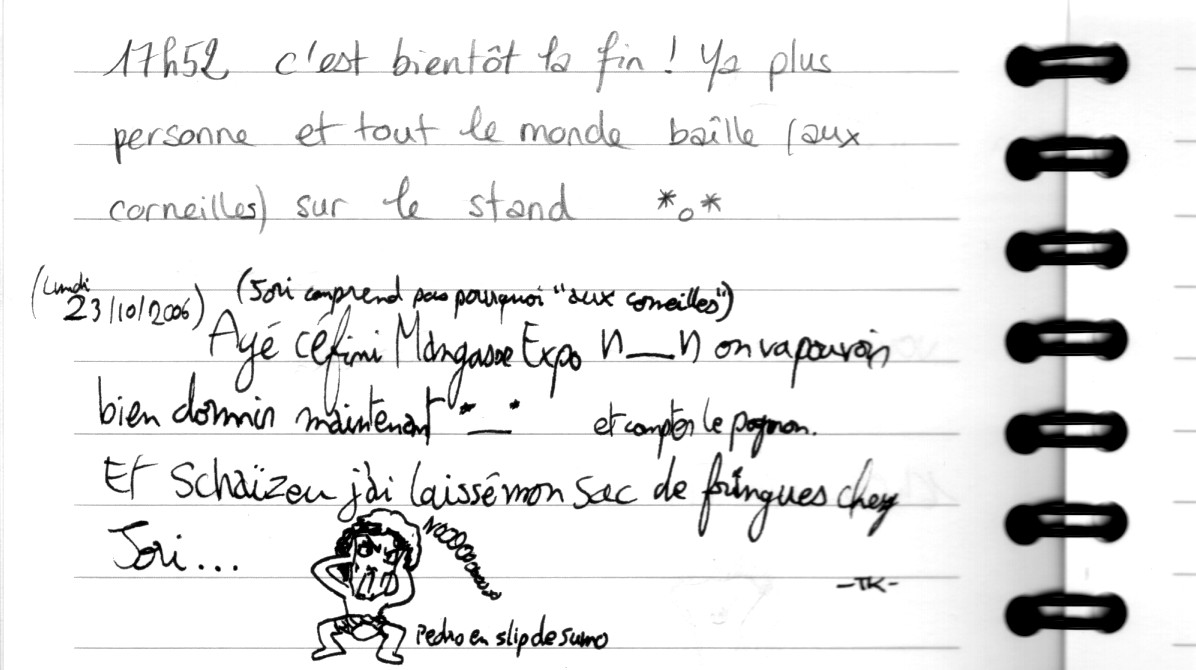 17h52 c'est bientôt la fin ! Ya plus
personne et tout le monde baîlle (aux
corneilles) sur le stand *o*
(Lundi
23/10/2006)
(Jori comprend pas pourquoi "aux corneilles")
Ayé céfini Mangasse Expo n__n on va pouvoir
bien dormir maintenant *__* et compter le pognon.
Et Schaïzeu j'ai laissé mon sac de fringues chez
Jori...
NOOOOOooooooo
-TK-
Pedro en slip de sumo